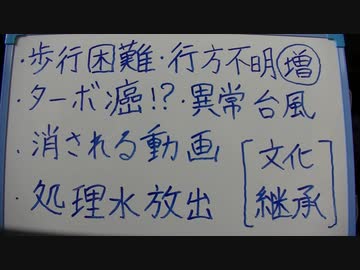 ・歩行困難・行方不明増
・ターボ癌!?・異常台風
・消される動画
・処理水放出
[文化
継承]